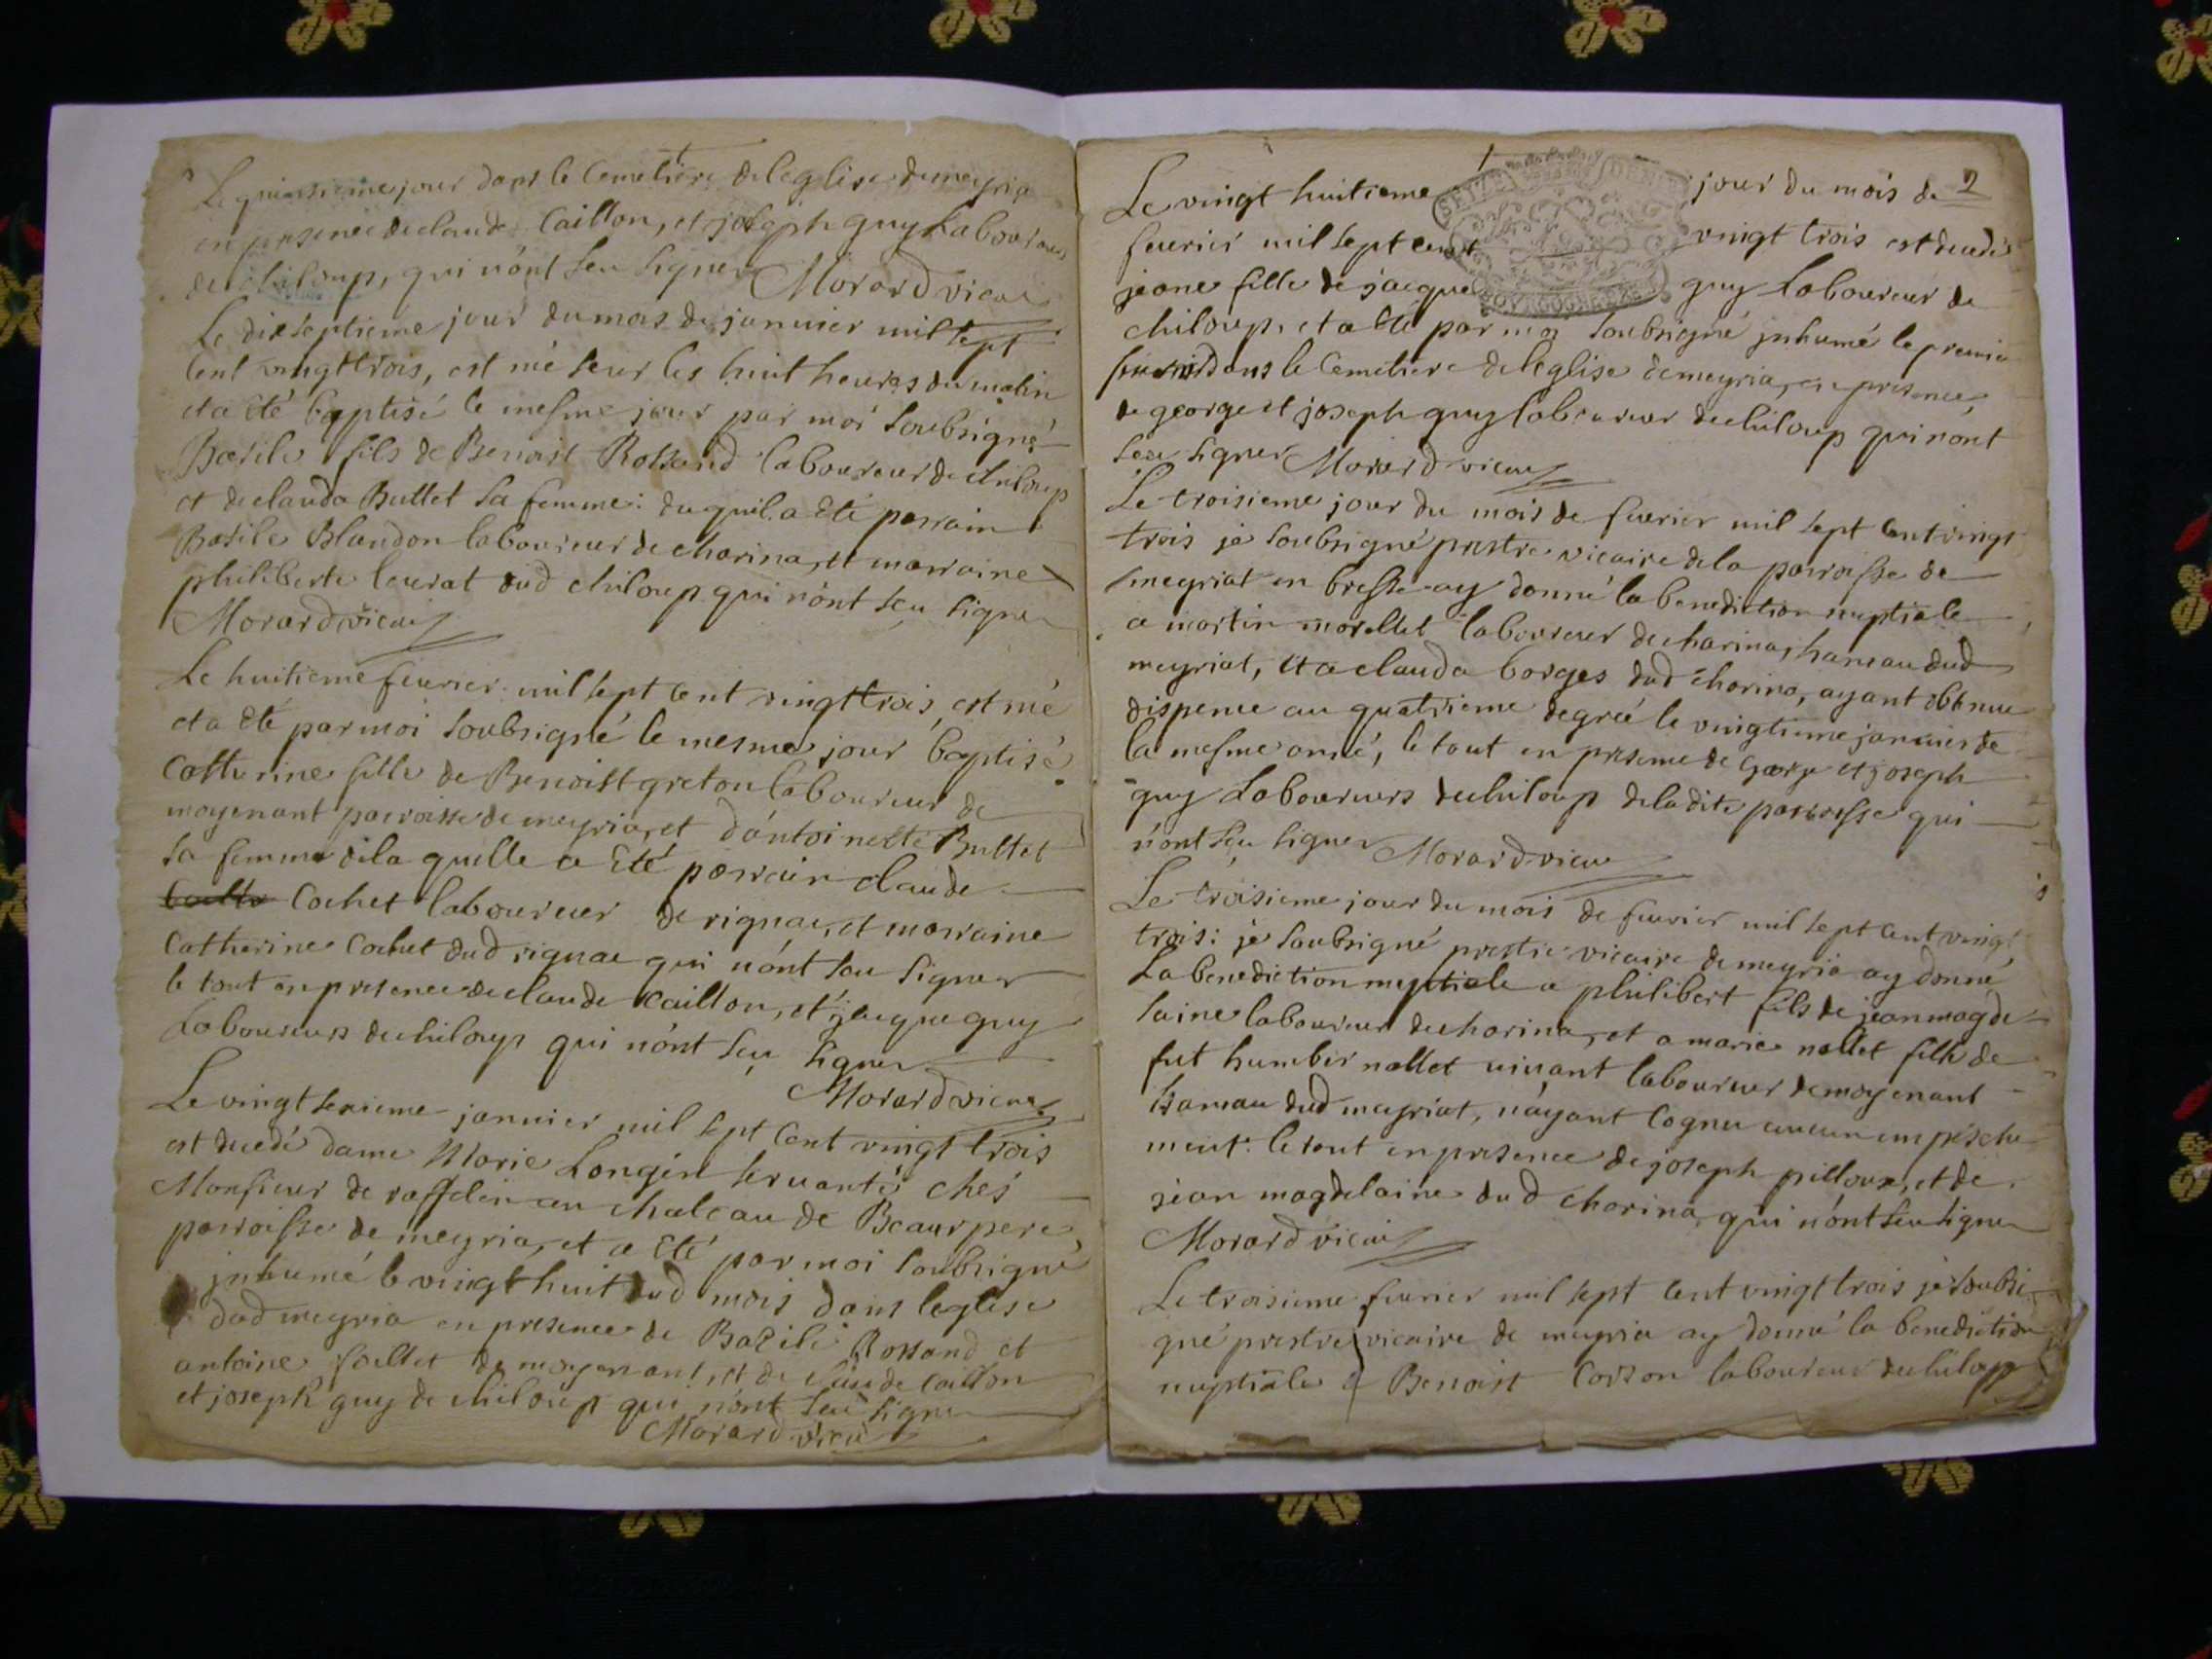 Le quinsieme jour dans le Cemetiere de leglise de meyria
en presence de claude Caillon, et joseph guy Laboureurs
de chiloup, qui n'ont sceu signer Morard vicaire
Le dixseptieme jour du mois de januier mil sept
Cent vingt trois, est né seur les huit heures du matin
et a été baptisé le mesme jour par moi soubsigné
Basile fils de Benoist Rossand laboureur de chiloup
et de clauda Buttet sa femme: duquil a été parrain
Basile Blandon laboureur de charina, et marraine
philiberte leurat dud chiloup qui n'ont sçu signer
Morard vicaire
Le huitieme feurier mil sept cent vingt trois, est né
et a été par moi soubsigné le mesme jour baptisé
Catherine fille de Benoist greton laboureur de
moyenant parroisse de meyria, et d'antoinette Buttet
sa femme de la quelle a été parrain claude
Cochet laboureur de rignac, et marraine
Catherine Cochet dud rignac qui n'ont sou signer
le tout en presence de claude Caillon, et jacque guy
Laboureurs de chiloup qui n'ont sçu signer
Morard vicaire
Le vingt sexieme januier mil sept Cent vingt trois
est decedé dame Marie Longin seruante chés
Monsieur de raffelin au chateau de Beaurpere
parroisse de meyria, et a été par moi soubsigné
inhumé le vingt huit dud mois dans leglise
dud meyria en presence de Bazile Rossand et
antoine foillet de moyenant, et de claude caillon
et joseph guy de chiloup qui n'ont sceu signer
Morard vicaire
2
Le vingt huitieme jour du mois de
feurier mil sept cent vingt trois est decedé
jeane fille de jacque guy Laboureur de
chiloup, et a été par moi soubsigné inhumé le premier
dans le Cemetiere de leglise de meyria, en presence
de george et joseph guy laboureur de chiloup qui n'ont
sceu signer Morard vicaire
Le troisieme jour du mois de feurier mil sept cent vingt
trois je soubsigné prestre vicaire de la parroisse de
meyriat en bresse ay donné la benediction nuptiale
a martin morellet laboureur de charina, hameau dud
meyriat, et a clauda borges dud charina, ayant obtenue
dispence au quatrieme degreé le vingtieme januier de
la mesme anné, le tout en presence de george et joseph
guy Laboureurs de chiloup de ladite parroisse qui
n'ont sçu signer Morard vicaire
Le troisieme jour du mois de feurier mil sept cent vingt
trois: je soubsigné prestre vicaire de meyria ay donné
La benediction nuptiale a philibert fils de jean magde
laine laboureur de charina, et a marie nallet fille de
fut humber nallet uiuant laboureur de moyenant
hameau dud meyriat, n'ayant Cognu aucun empesche
ment: le tout en presence de joseph pilloux, et de
jean magdelaine dud charina, qui n'ont sceu signer
Morard vicaire
Le troisieme feurier mil sept cent vingt trois je soubsi
gné prestre vicaire de meyria ay donné la benediction
nuptiale a Benoist Corson laboureur de chiloup